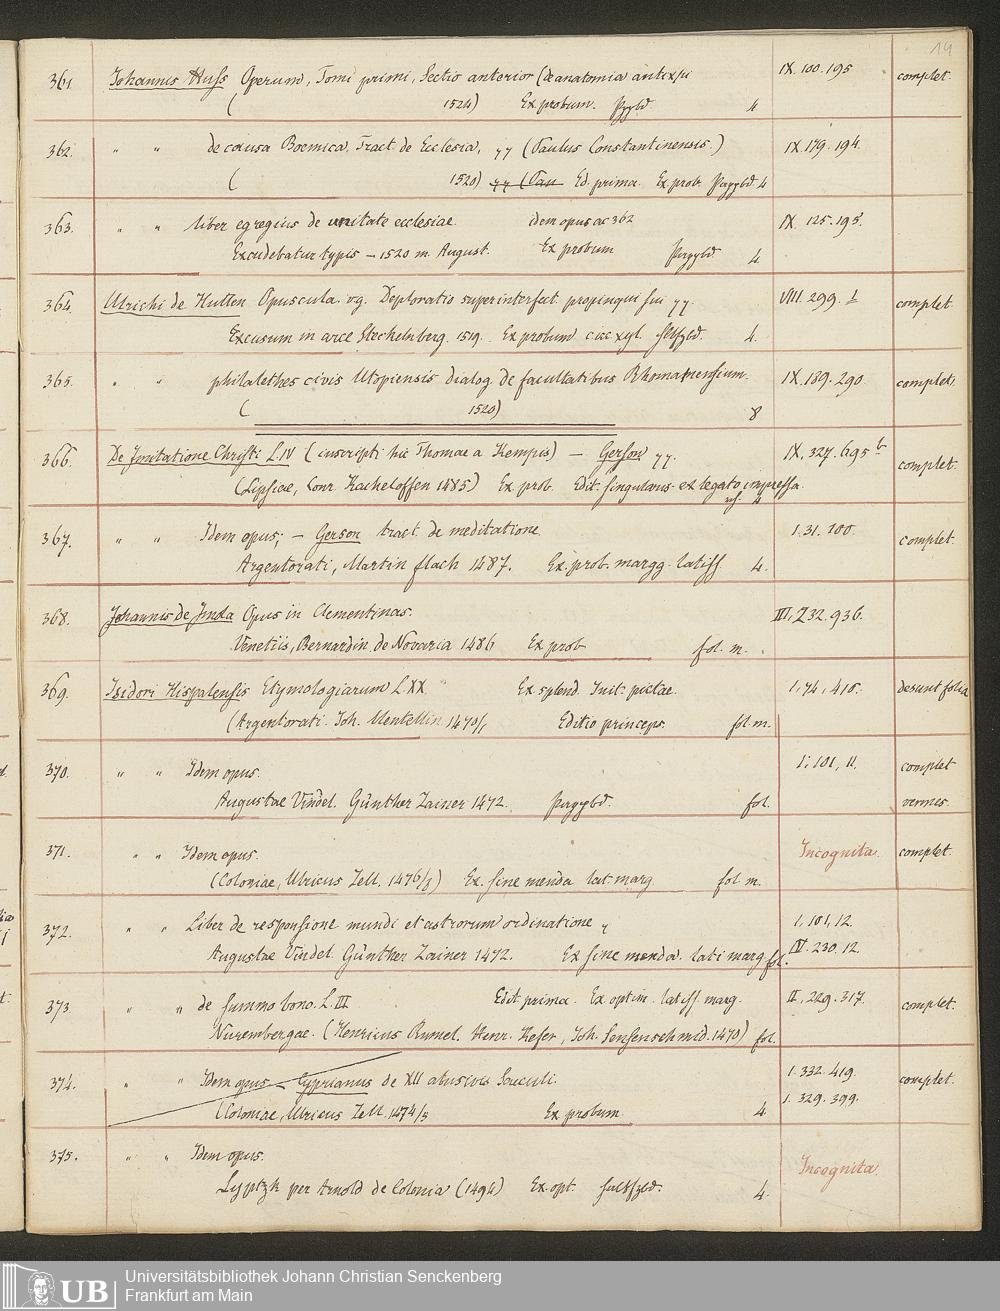 14
361. Johannis Huss Operum, Tomi primi, Sectio anterior (de anatomia antixpi IX. 100. 195 complet.
( 1524) Ex probum. Ppgbd 4
362. " " de causa Boemica. Tract. de Ecclesia, (Paulus Constantinensis.) IX. 179. 194.
( 1520) Ed. prima. Ex. prob. Pergbd 4
363. " " Liber egregius de unitate ecclesiae. idem opus ac 362 IX. 125. 195.
Excudebatur typis – 1520 m. August. Ex probum Pergbd 4
364. Ulrichi de Hutten Opuscula. vg. Deploratio super interfect. propinqui sui VIII. 299. 1 complet
Excusum in arce Steckelnberg. 1519. Ex probum c. ic xyl. 4.
365. " " philalethes civis Utopiensis dialog. de facultatibus Rhomanensium. IX. 189. 290 complet.
( 1520) 8
366. De Imitatione Christi L. IV (inscripti hic Thomae a Kempis) – Gerson IX, 327. 695 b complet.
(Lipsiae, Conr. Kacheloffen 1485) Ex prob. Edit. singularis et legato impressa. 4
367. " " Idem opus; – Gerson tract. de meditatione 1. 31. 100. complet.
Argentorati, Martin flach 1487. Ex. prob. margg. latiss 4.
368. Johannis de Imola Opus in Clementinas. III, 232. 936.
Venetiis, Bernardin. de Novaria 1486 Ex prob fol. m.
369. Isidori Hispalensis Etymologiarum L. XX Ex splend. Init. pictae. 1, 74, 415. desunt folia
(Argentorati Joh. Mentellin 1470/1 Editio princeps. fol. m.
370. " " Idem opus. 1. 101, 11. complet
Augustae Vindel. Günther Zainer 1472. Pergbd. fol. vermes.
371. " " Idem opus. Incognita. complet.
(Coloniae, Ulricus Zell. 1476/8) Ex. sine menda lat. marg. fol m.
372. " " Liber de responsione mundi et astrorum ordinatione 1, 101, 12.
Augustae Vindel. Günther Zainer 1472. Ex sine menda. lati marg fol. IV. 230. 12.
373. " " de summo bono. L. III Edit prima. Ex optim. latiss. marg. II, 229. 317. complet.
Nurembergae. (Henricus Rumel. Henr. Kefer, Joh. Sensenschmid. 1470) fol.
374. " " Idem opus – Cyprianus de XII abusivis Saeculi. 1. 332. 419. complet.
(Coloniae, Ulricus Zell. 1474/5 Ex probum 4 1. 329. 399.
375. " " Idem opus. Incognita
Lyptzk per Arnold de Colonia (1494) Ex. opt. 4.
UB Universitätsbibliothek Johann Christian Senckenberg
Frankfurt am Main